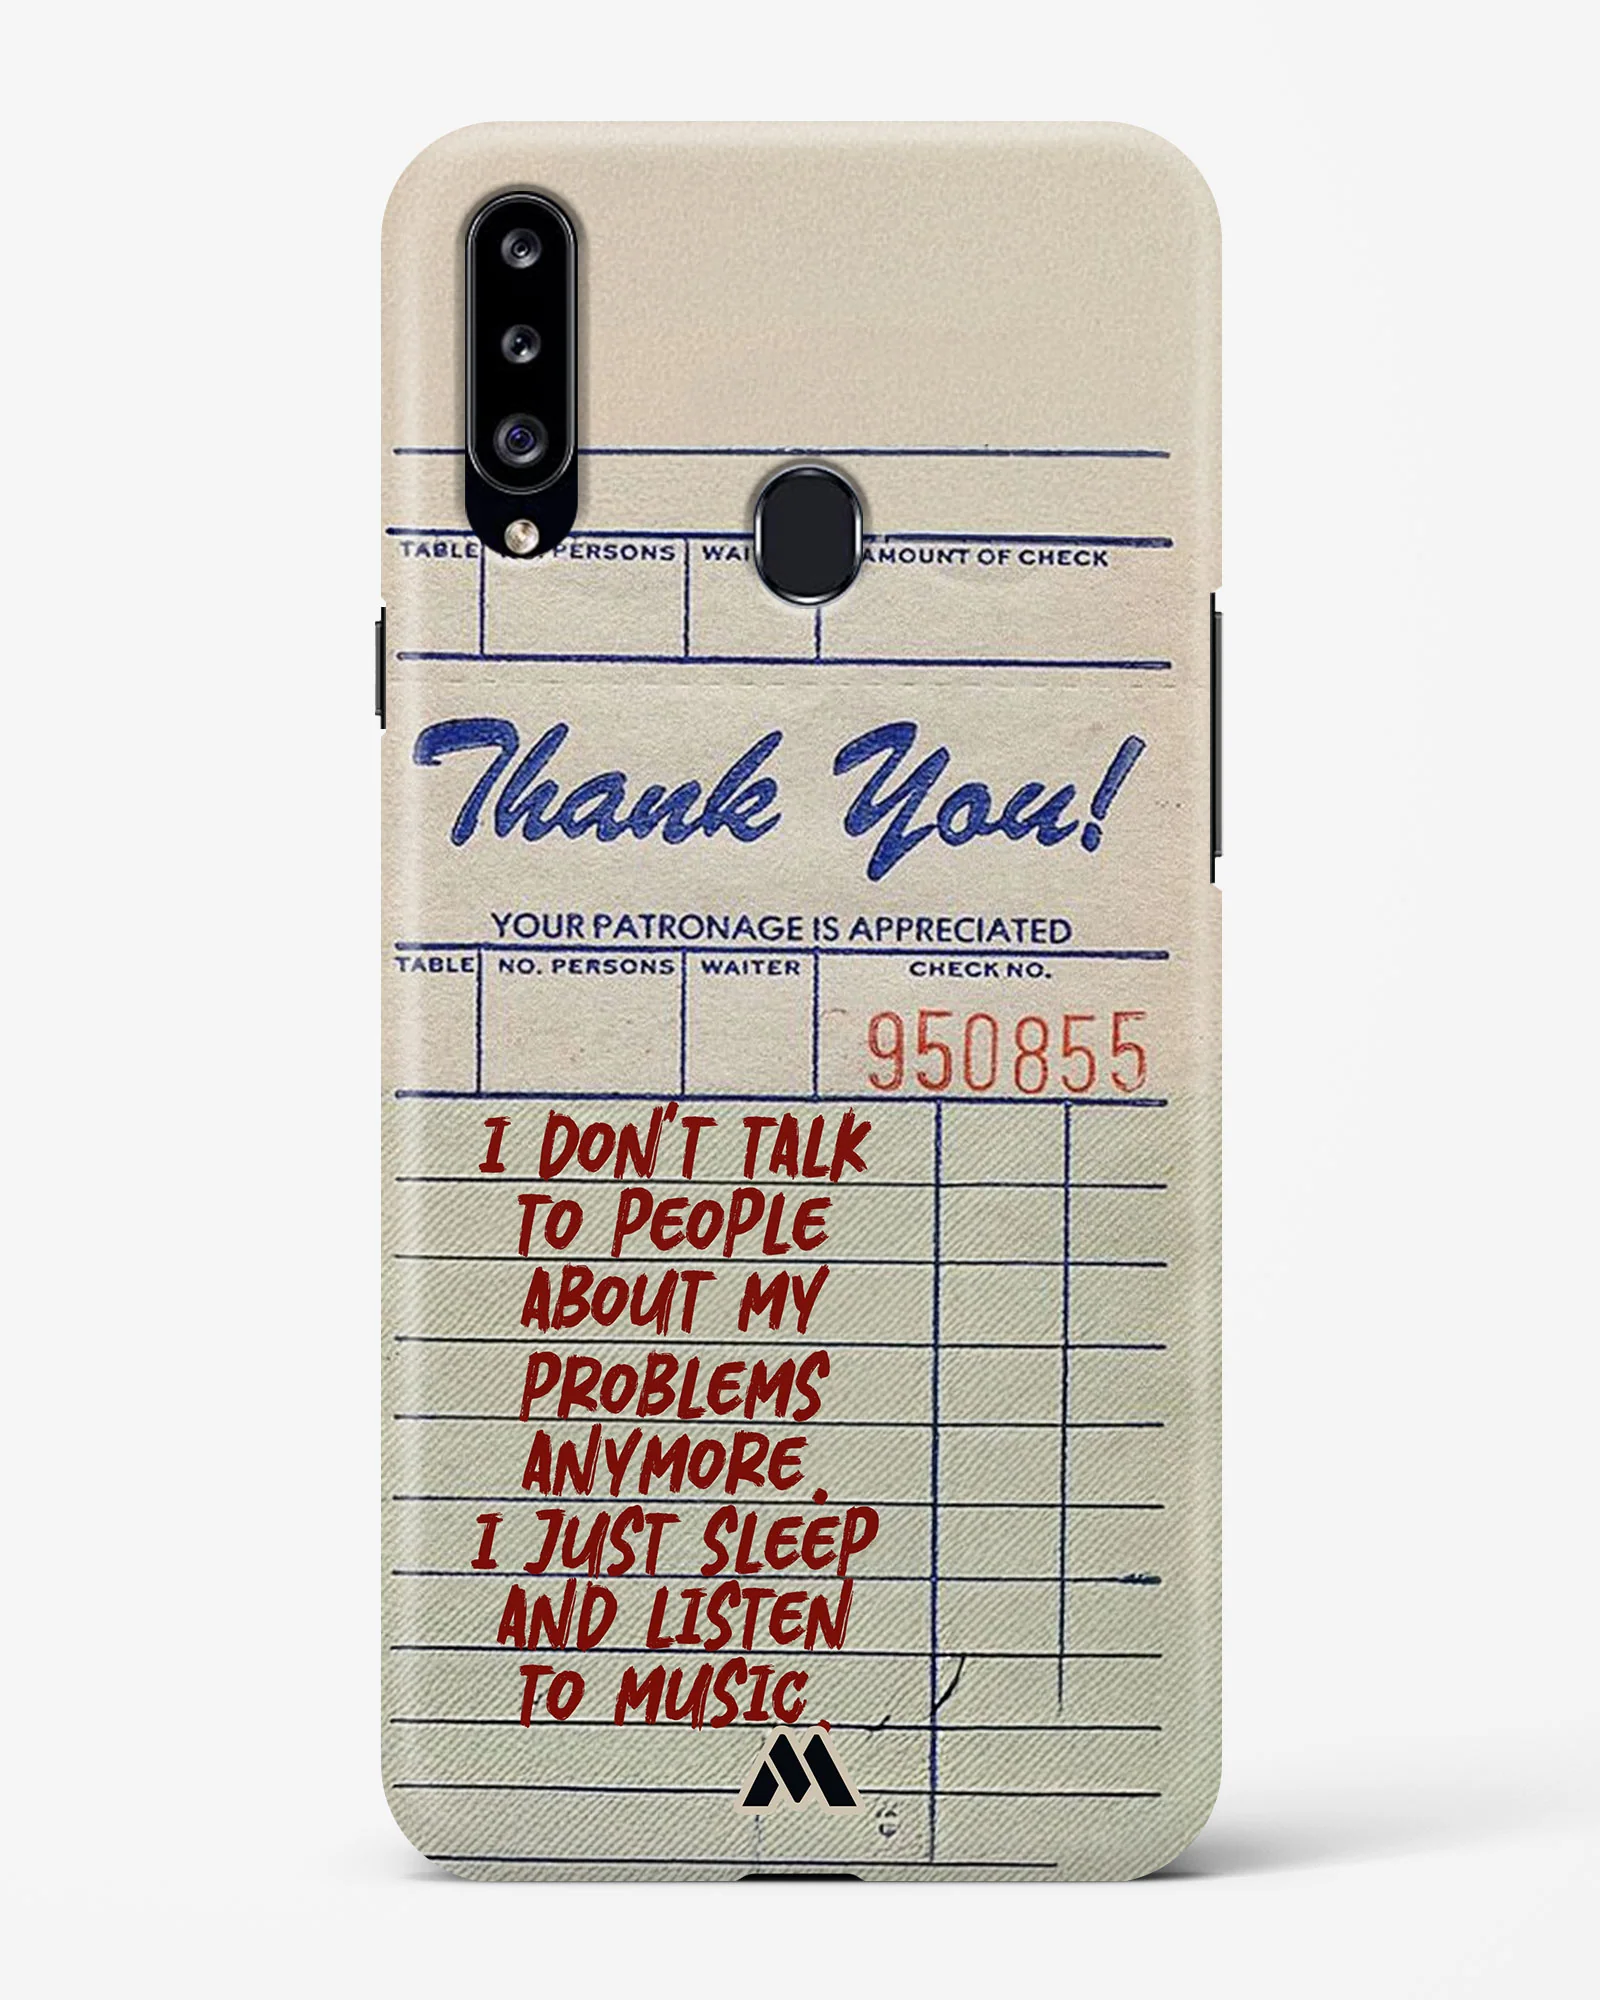 TABLE PERSONS AMOUNT OF CHECK
Thank You!
YOUR PATRONAGE IS APPRECIATED
TABLE NO. PERSONS WAITER CHECK NO.
950855
I DON'T TALK
TO PEOPLE
ABOUT MY
PROBLEMS
ANYMORE.
I JUST SLEEP
AND LISTEN
TO MUSIC.